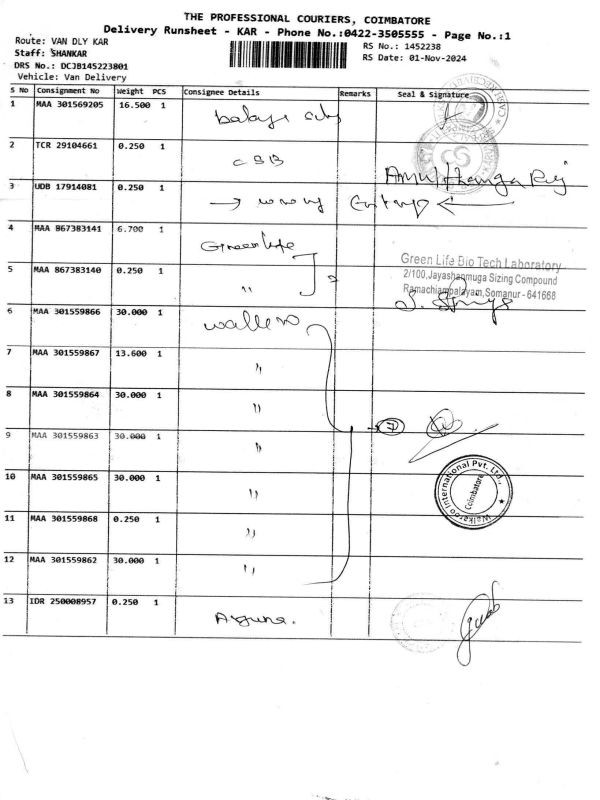 THE PROFESSIONAL COURIERS, COIMBATORE
Delivery Runsheet - KAR - Phone No.:0422-3505555 - Page No.:1
Route: VAN DLY KAR
RS No.: 1452238
Staff: SHANKAR
RS Date: 01-Nov-2024
DRS No.: DCJB145223801
Vehicle: Van Delivery
S No Consignment No Weight PCS Consignee Details Remarks Seal & Signature
1 MAA 301569205 16.500 1
2 TCR 29104661 0.250 1 CSB
CS
3 UDB 17914081 0.250 1 → wrong Entry ←
4 MAA 867383141 6.700 1 Green life
Green Life Bio Tech Laboratory
5 MAA 867383140 0.250 1 "
2/100,Jayashanmuga Sizing Compound
Ramachiampalayam,Somanur - 641668
6 MAA 301559866 30.000 1
7 MAA 301559867 13.600 1 "
8 MAA 301559864 30.000 1 "
7
9 MAA 301559863 30.000 1 "
10 MAA 301559865 30.000 1 "
Walkaroo International Pvt. Ltd.,
Coimbatore
11 MAA 301559868 0.250 1 "
12 MAA 301559862 30.000 1 "
13 IDR 250008957 0.250 1